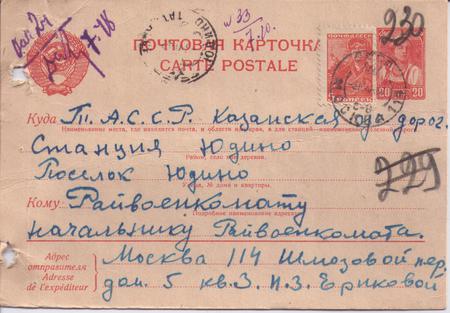 № 33
7.10.
230
ПОЧТОВАЯ КАРТОЧКА
CARTE POSTALE
20 20
Куда Т.А.С.С.Р. Казанская ж. дорог.
Наименование места, где находится почта, и области или края, а для станций—наименование железной дорог
Станция Юдино
Район, село или деревня.
Поселок Юдино
Улица, № дома и квартиры.
229
Кому Райвоенкомату
Подробное наименование адресата
начальнику Рйвоенкомата.
Адрес отправителя
Adresse de l'expéditeur
Москва 114 Шлюзовой пер.
дом. 5 кв. 3. П.З. Ериковой